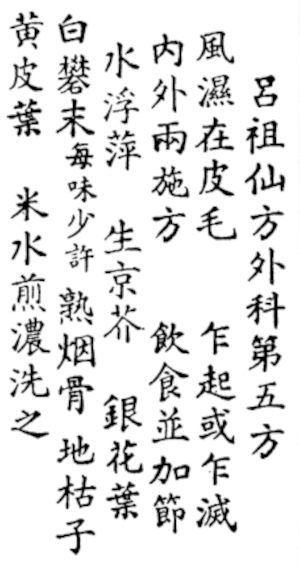 呂祖仙方外科第五方
風濕在皮毛 乍起或乍滅
內外兩施方 飲食並加節
水浮萍 生京芥 銀花葉
白礬末每味少許 熟烟骨 地枯子
黃皮葉 米水煎濃洗之